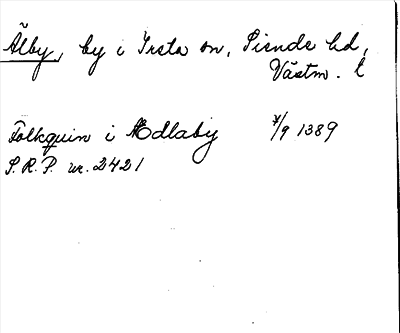 Älby, by i Irsta sn, Siende hd,
Västm. l
Folkquin i Ædlaby 4/9 1389
S.R.P. nr. 2421